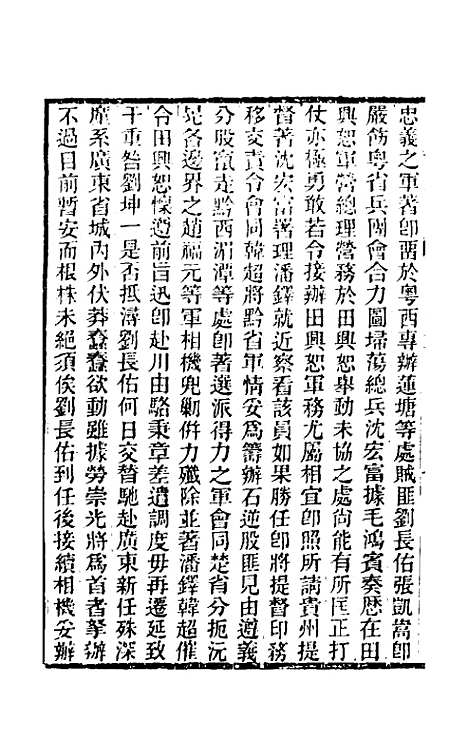 忠義之軍著卽留於粤西專辦蓮塘等處賊匪劉長佑張凱嵩卽
嚴飭粤省兵團會合力圖埽蕩總兵沈宏富據毛鴻賓奏歷在田
興恕軍營總理營務於田興恕舉動未協之處尙能有所匡正打
仗亦極勇敢若令接辦田興恕軍務尤屬相宜卽照所請貴州提
督著沈宏富署理潘鐸就近察看該員如果勝任卽將提督印務
移交責令會同韓超將黔省軍情妥爲籌辦石逆股匪見由遵義
分股竄走黔西湄潭等處卽著選派得力之軍會同楚省分扼沅
晃各邊界之趙福元等軍相機兜勦倂力殲除並著潘鐸韓超催
令田興恕懍遵前旨迅卽赴川由駱秉章差遣調度毋再遷延致
干重咎劉坤一是否抵潯劉長佑何日交替馳赴廣東新任殊深
廑系廣東省城內外伏莽蠢蠢欲動雖據勞崇光將爲首者拏辦
不過目前暫安而根株未絕須俟劉長佑到任後接續相機妥辦